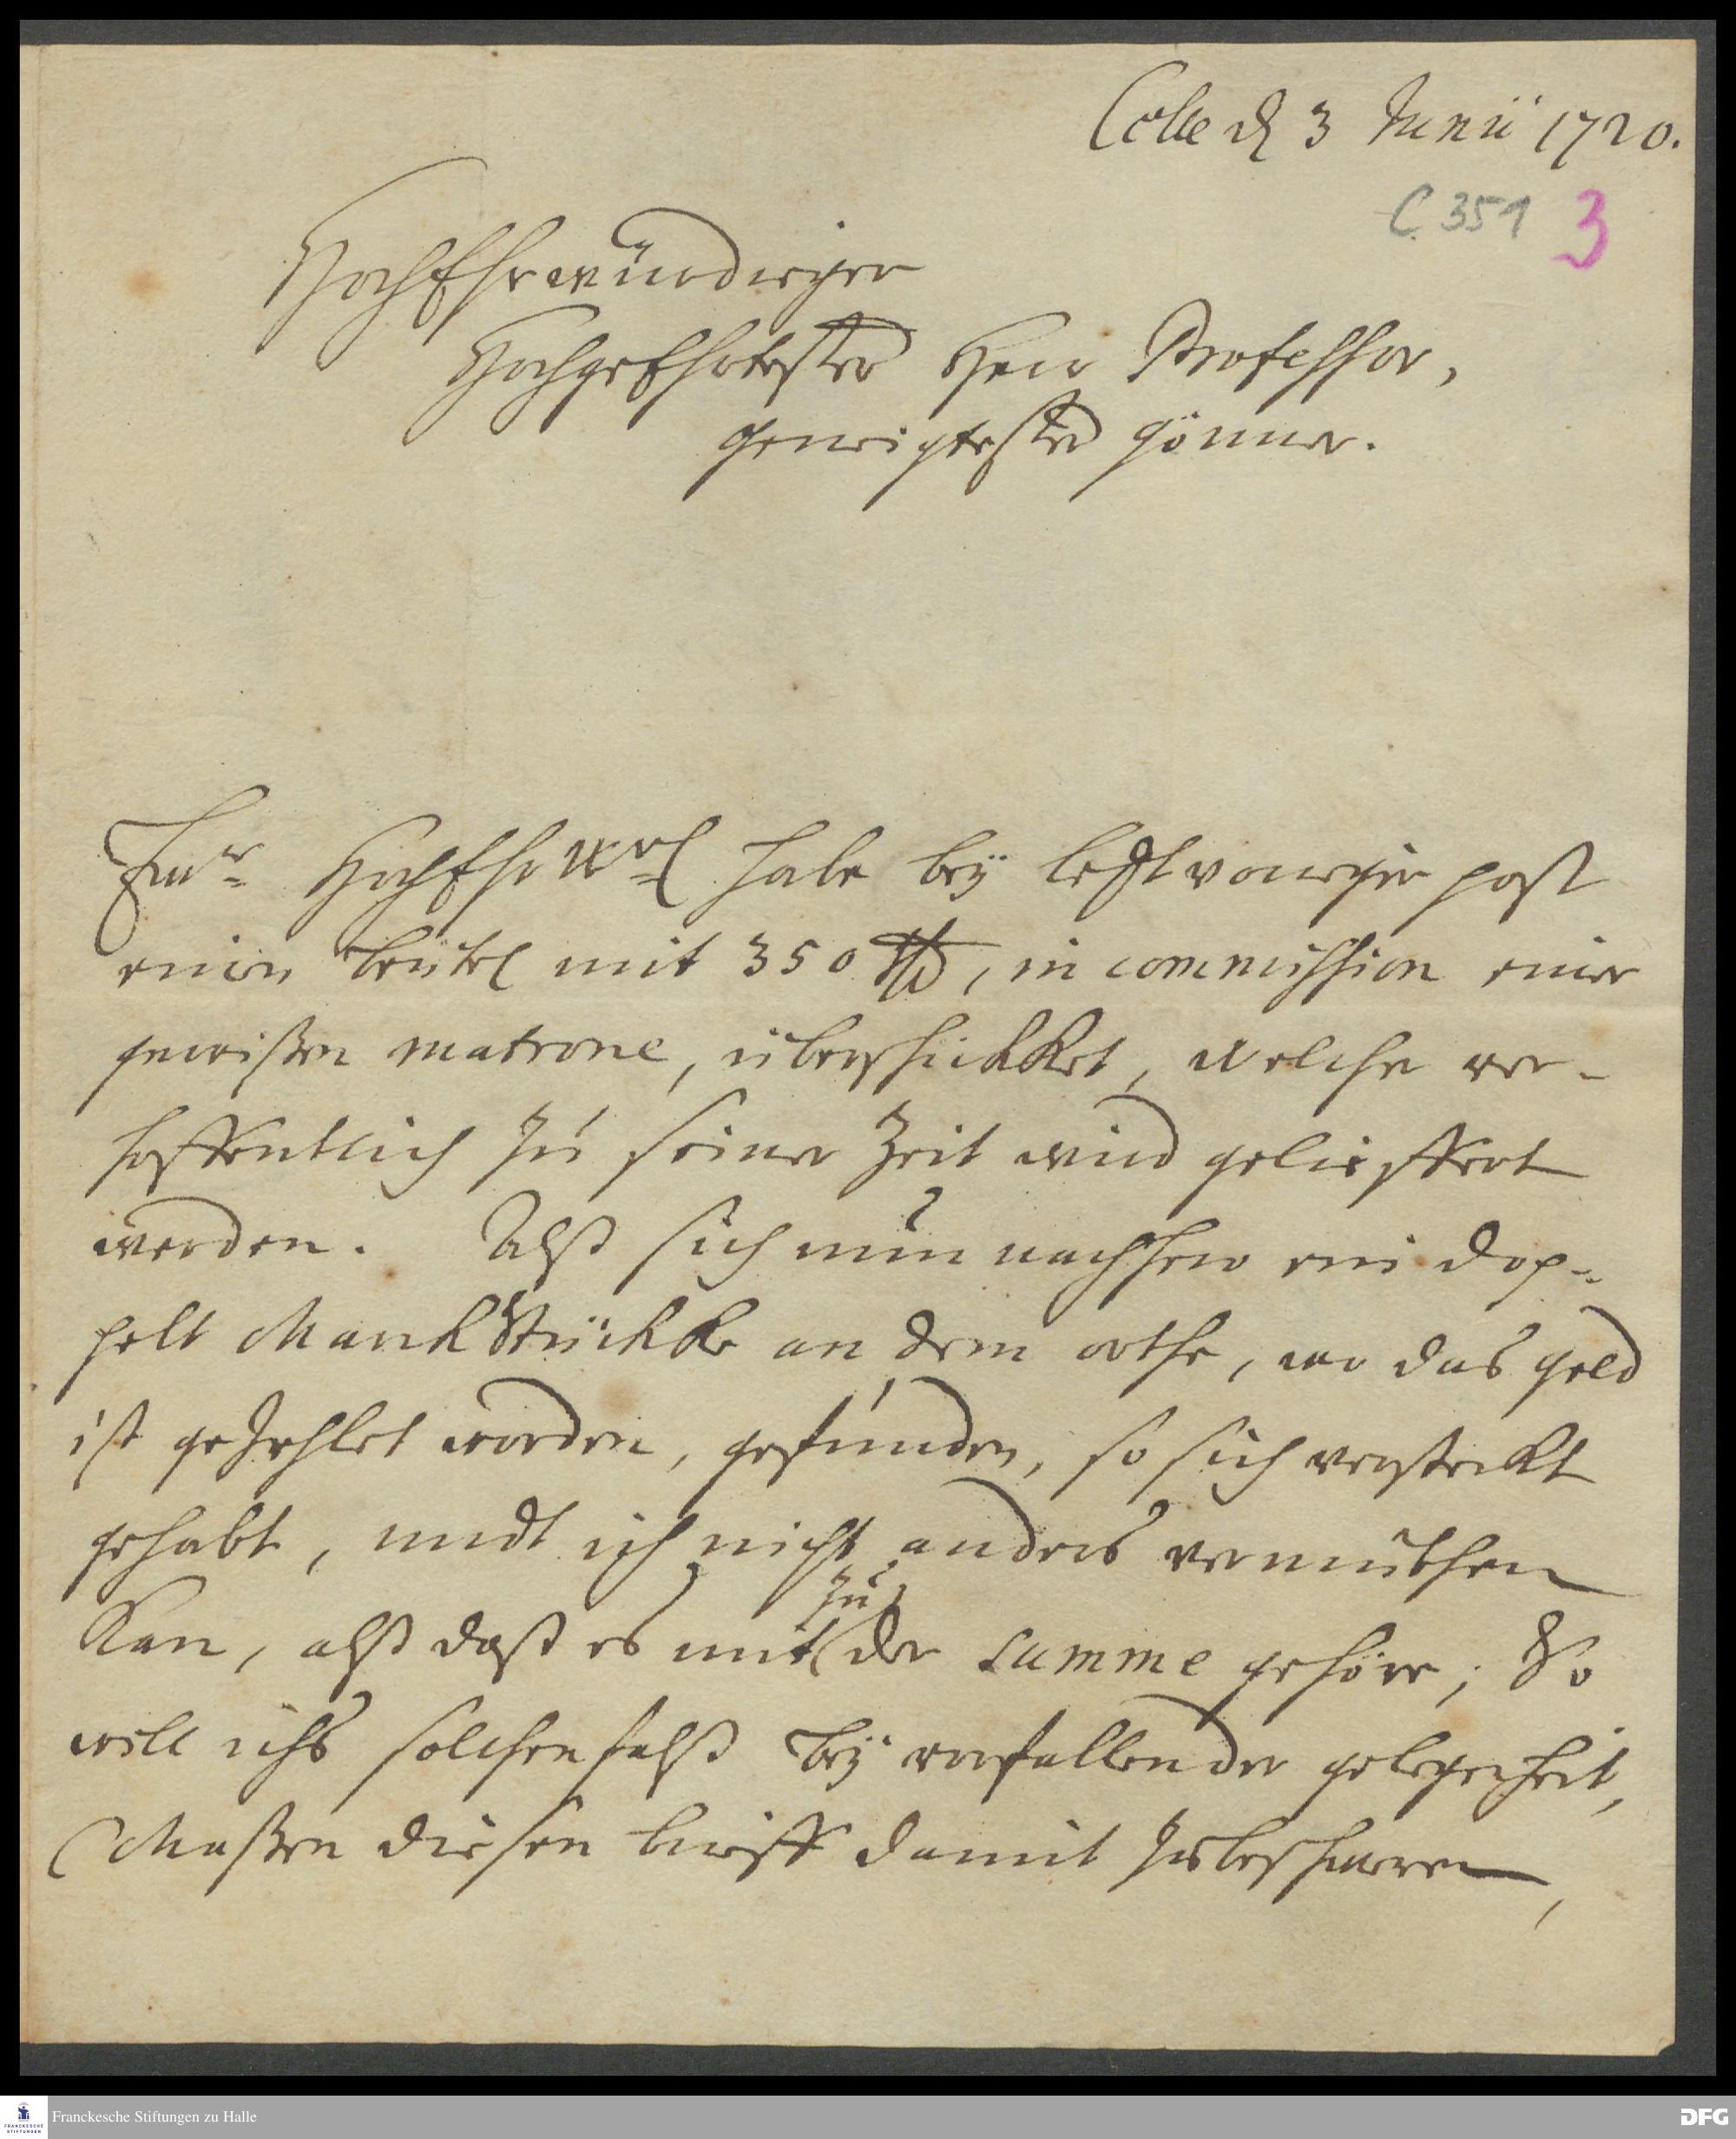 Celle d 3 Junii 1720.
C 351 3
HochEhrwürdiger
HochgeEhrtester Herr Professor,
geneigtester gönner.
Ewr HochEhrWrd habe bey letztvoriger post
einen beutel mit 350 rthl, in commission einer
gewißen matrone, überschickket, welche ver-
hoffentlich zu seiner Zeit wird gelieffert
werden. Alß sich nun nachher ein dop-
pelt Marck Stückke an dem orthe, wo das geld
ist gezehlet worden, gefunden, so sich versteckt
gehabt, undt ich nicht anders vermuthen
kan, alß daß es mit zu der summe gehöre; So
will ichs solchenfalß bey vorfallender gelegenheit,
(Maßen diesen brieff damit zubeschweren,
Franckesche Stiftungen zu Halle
FRANCKESCHE
STIFTUNGEN
DFG